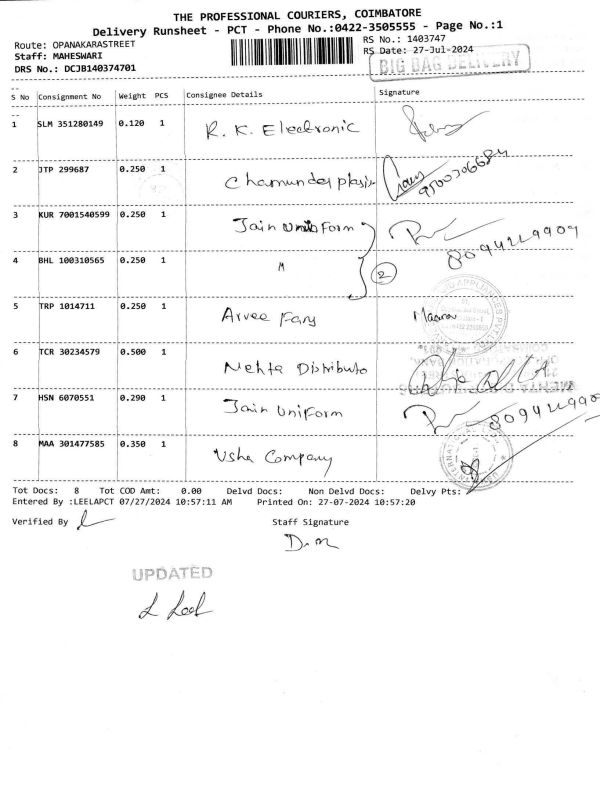 THE PROFESSIONAL COURIERS, COIMBATORE
Delivery Runsheet - PCT - Phone No.:0422-3505555 - Page No.:1
Route: OPANAKARASTREET
RS No.: 1403747
Staff: MAHESWARI
RS Date: 27-Jul-2024
DRS No.: DCJB140374701
BIG BAG DELIVERY
S No Consignment No Weight PCS Consignee Details Signature
1 SLM 351280149 0.120 1 R. K. Electronic
2 JTP 299687 0.250 1 Chamunder plastic
9500306684
3 KUR 7001540599 0.250 1 Jain Uniform
8094219909
4 BHL 100310565 0.250 1 M 2
5 TRP 1014711 0.250 1 Arvee Fans
6 TCR 30234579 0.500 1 Mehta Distributo
7 HSN 6070551 0.290 1 Jain Uniform
8 MAA 301477585 0.350 1 Usha Company
Tot Docs: 8 Tot COD Amt: 0.00 Delvd Docs: Non Delvd Docs: Delvy Pts:
Entered By :LEELAPCT 07/27/2024 10:57:11 AM Printed On: 27-07-2024 10:57:20
Verified By
Staff Signature
UPDATED